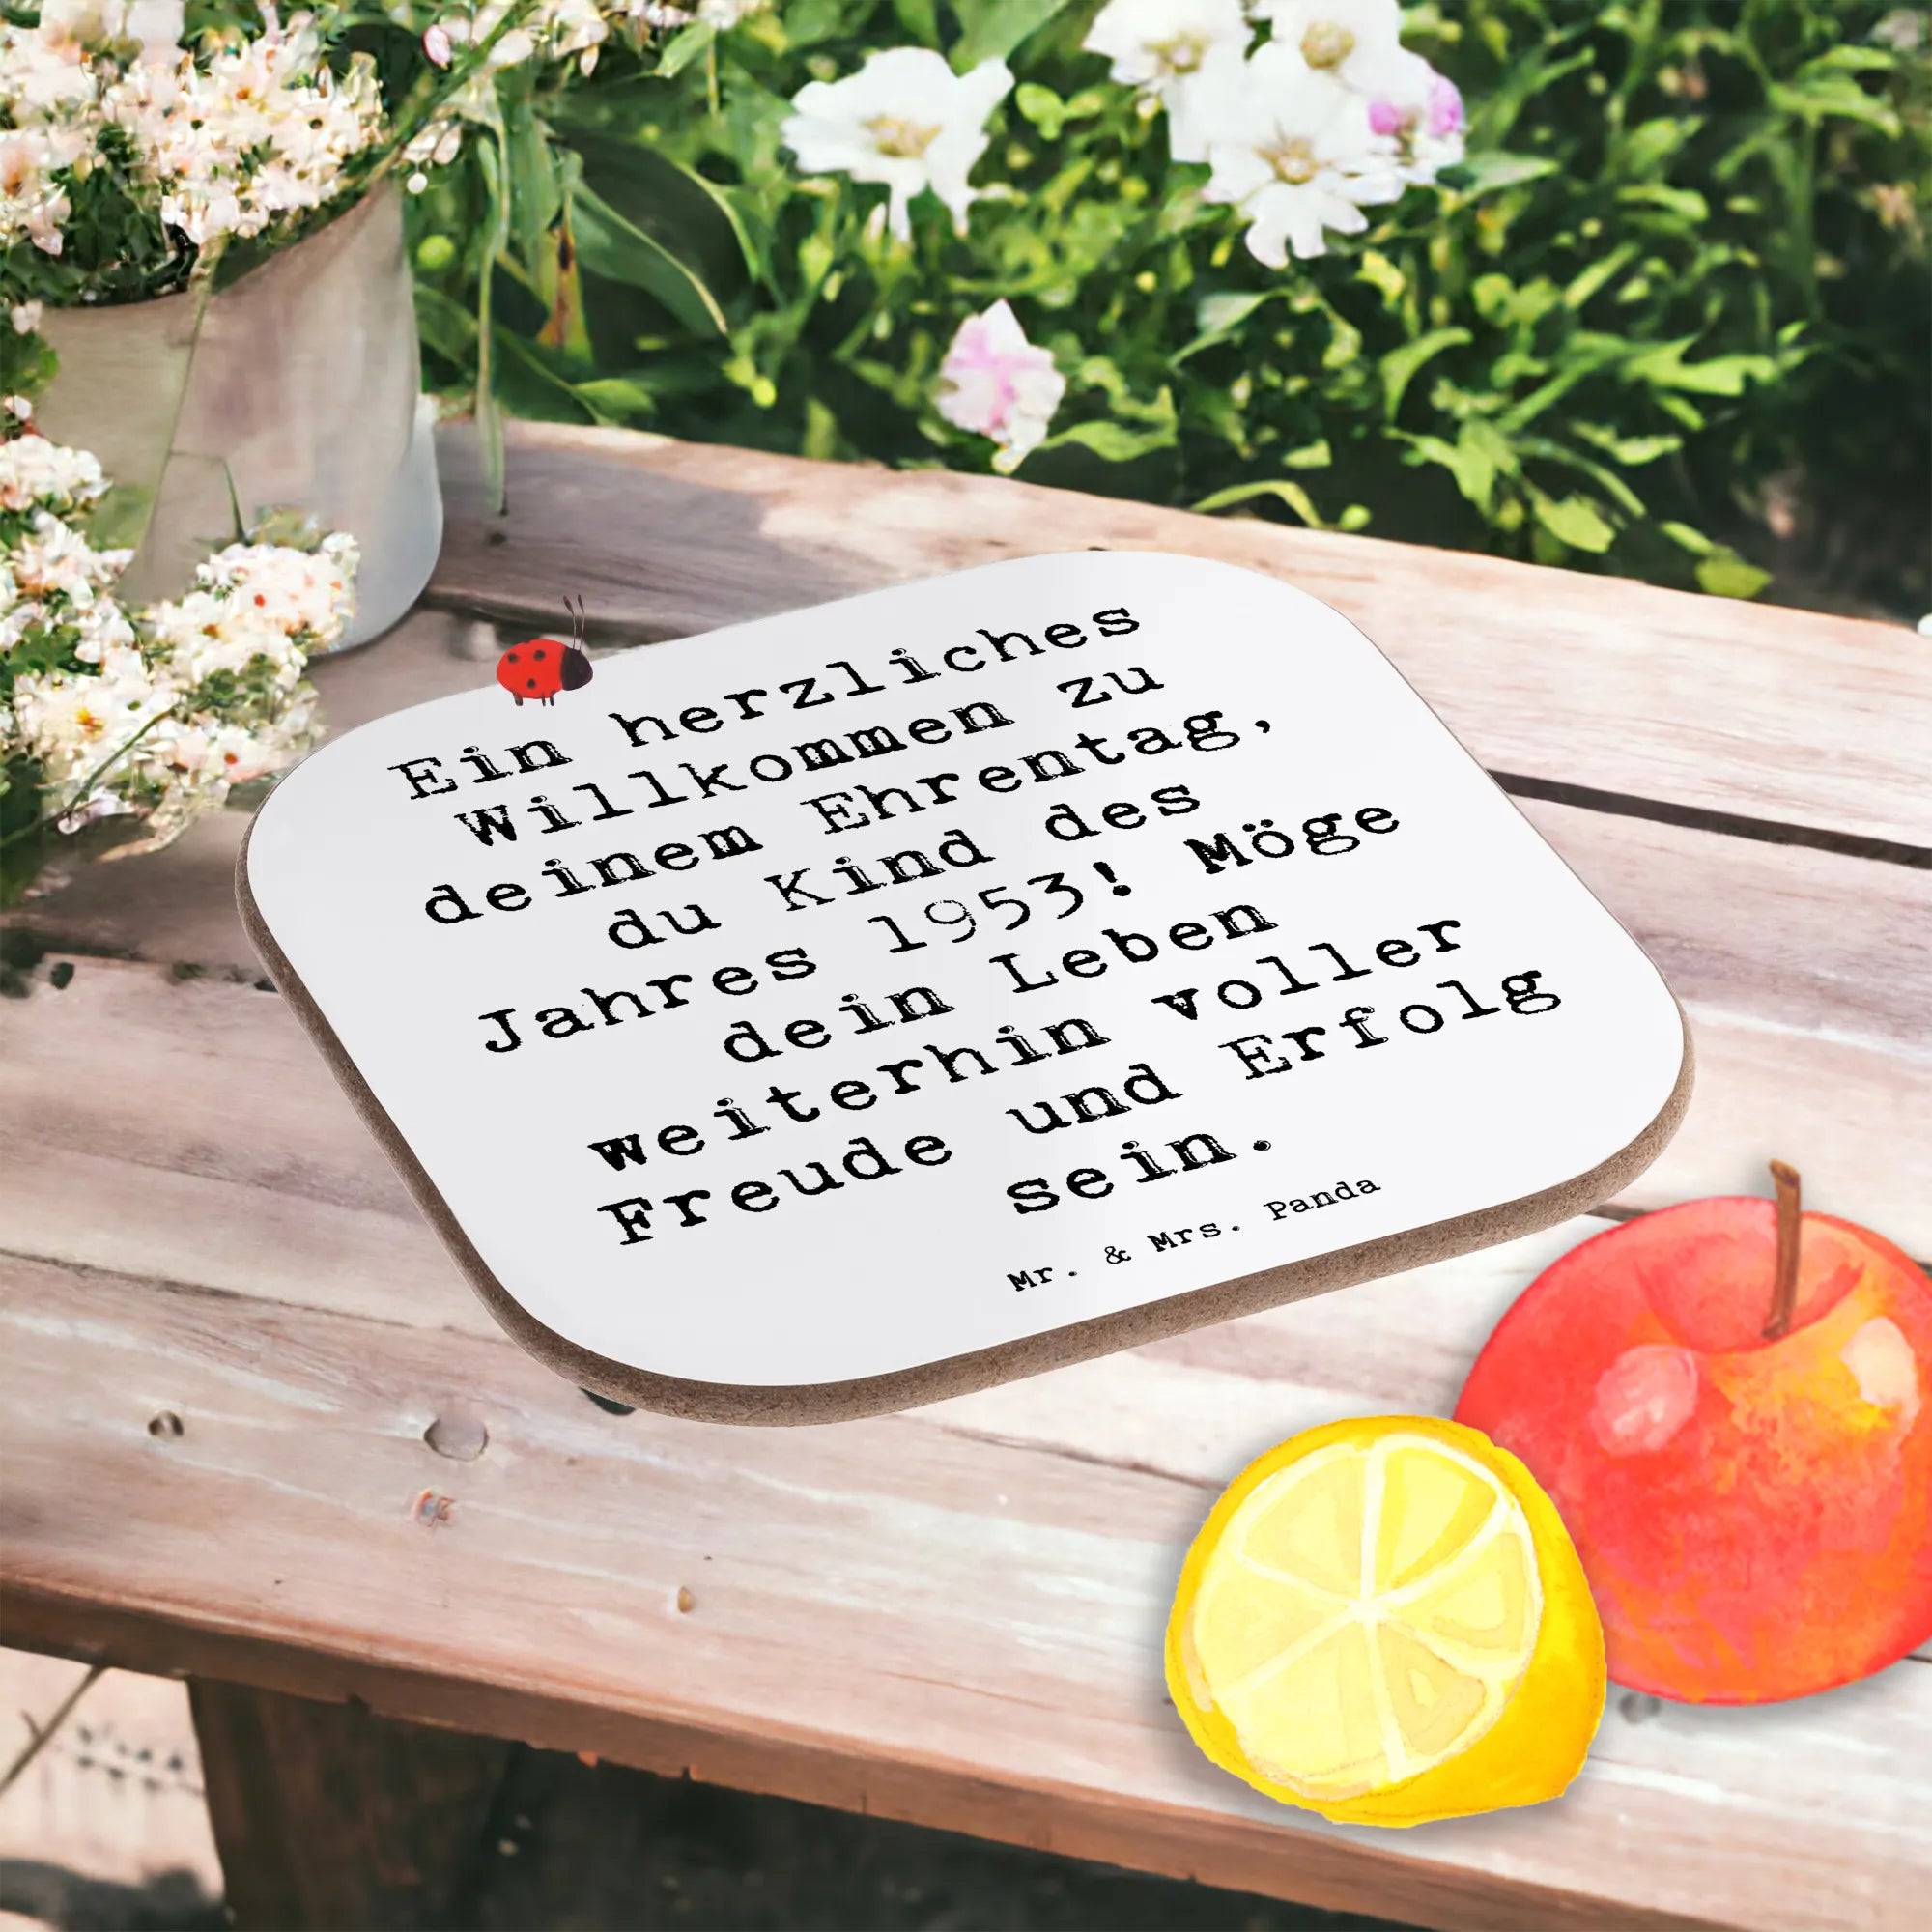 Ein herzliches
Willkommen zu
deinem Ehrentag,
du Kind des
Jahres 1953! Möge
dein Leben
weiterhin voller
Freude und Erfolg
sein.
Mr. & Mrs. Panda